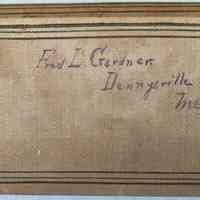 Fred L. Gardner.
Dennysville
Me